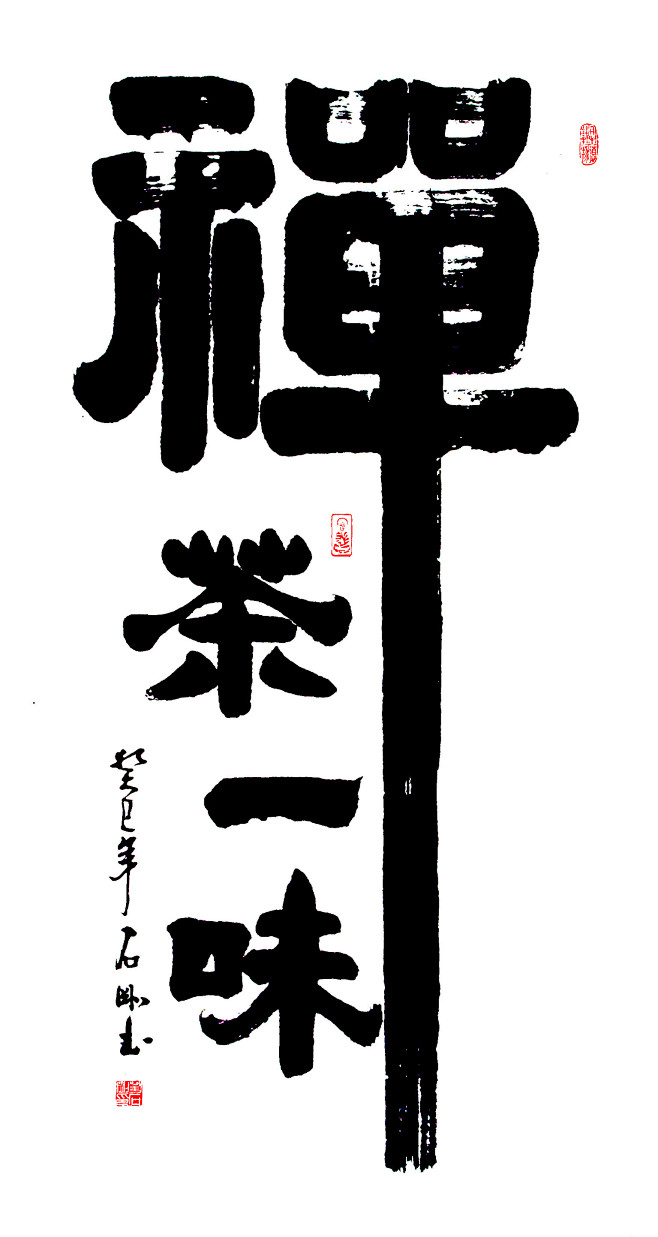 禪
茶一味
癸巳年石臥书